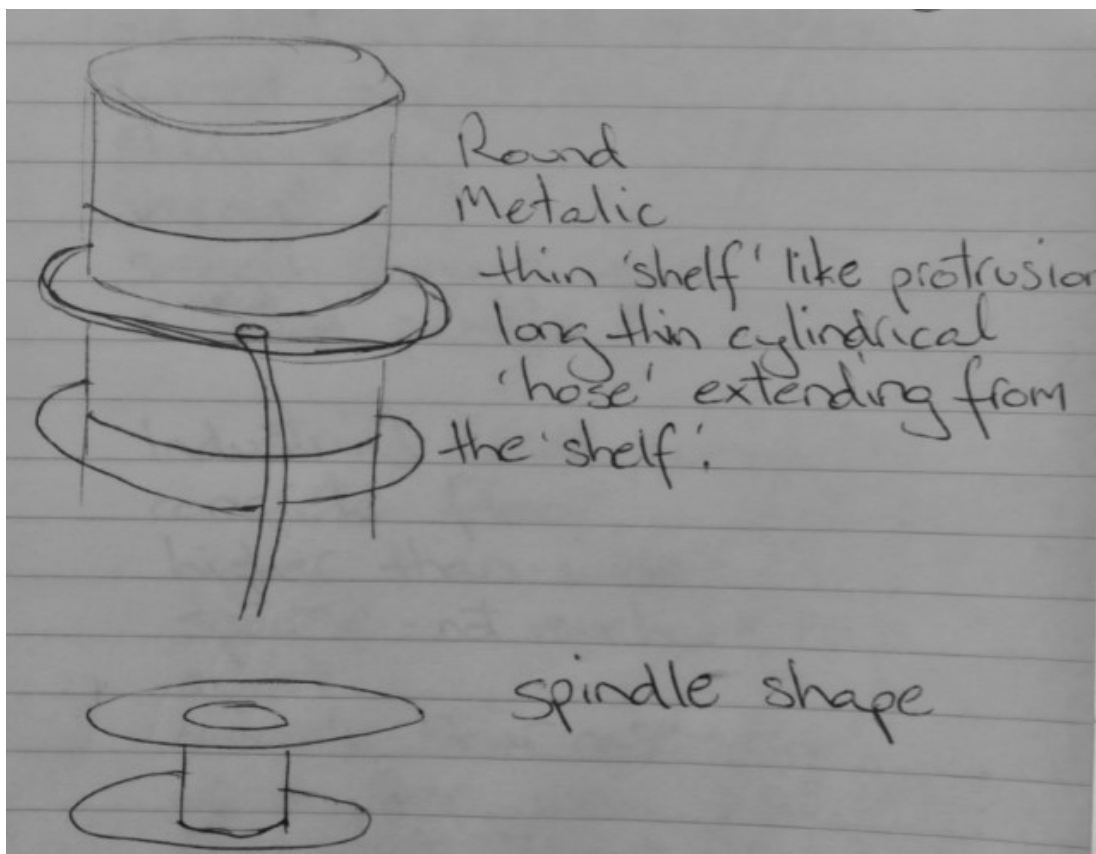 Round
Metalic
thin 'shelf' like protrusion
long thin cylindrical
'hose' extending from
the 'shelf'.
spindle shape